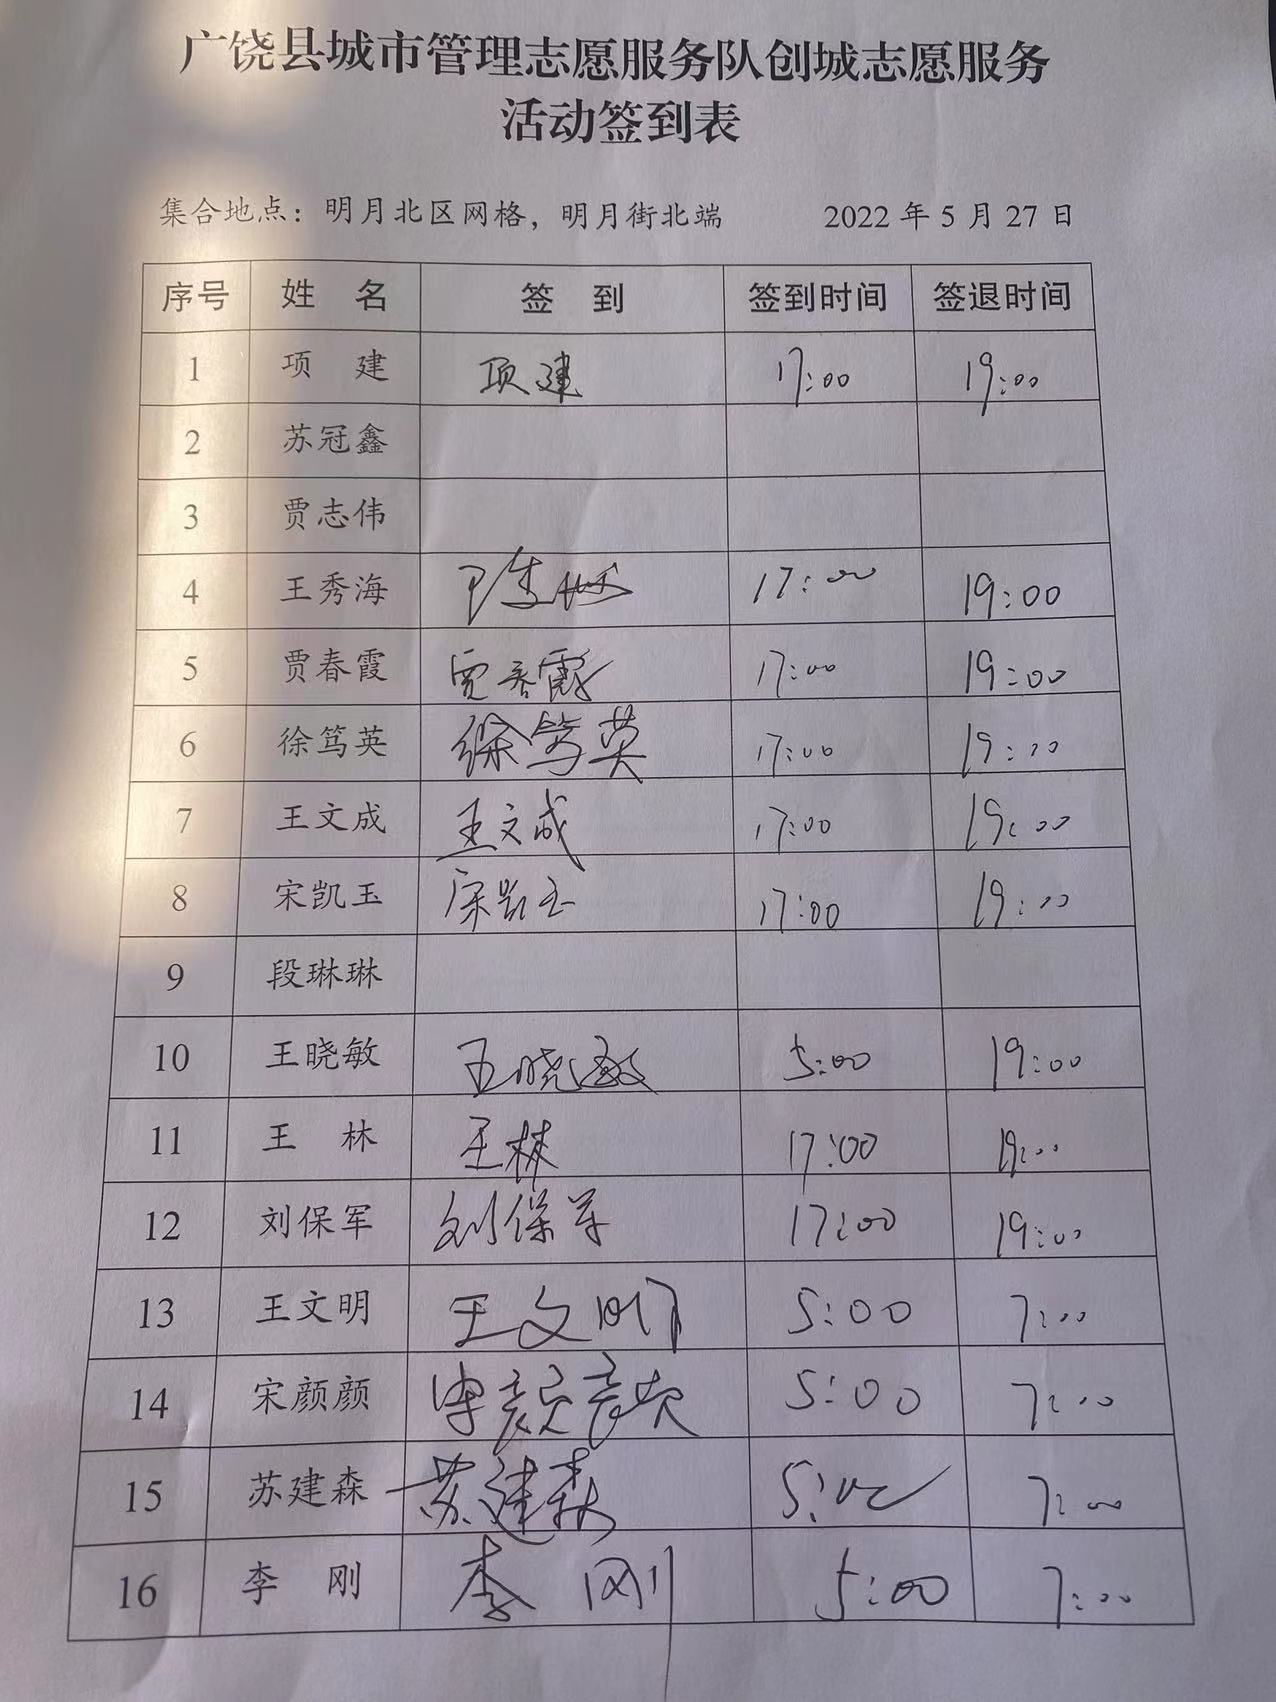 广饶县城市管理志愿服务队创城志愿服务
活动签到表
集合地点：明月北区网格，明月街北端 2022 年 5 月 27 日
序号 姓 名 签 到 签到时间 签退时间
1 项 建 项建 17:00 19:00
2 苏冠鑫
3 贾志伟
4 王秀海 17:00 19:00
5 贾春霞 贾春霞 17:00 19:00
6 徐笃英 徐笃英 17:00 19:00
7 王文成 王文成 17:00 19:00
8 宋凯玉 宋凯玉 17:00 19:00
9 段琳琳
10 王晓敏 王晓敏 5:00 19:00
11 王 林 王林 17:00 19:00
12 刘保军 刘保军 17:00 19:00
13 王文明 王文明 5:00 7:00
14 宋颜颜 宋颜颜 5:00 7:00
15 苏建森 苏建森 5:00 7:00
16 李 刚 李刚 5:00 7:00